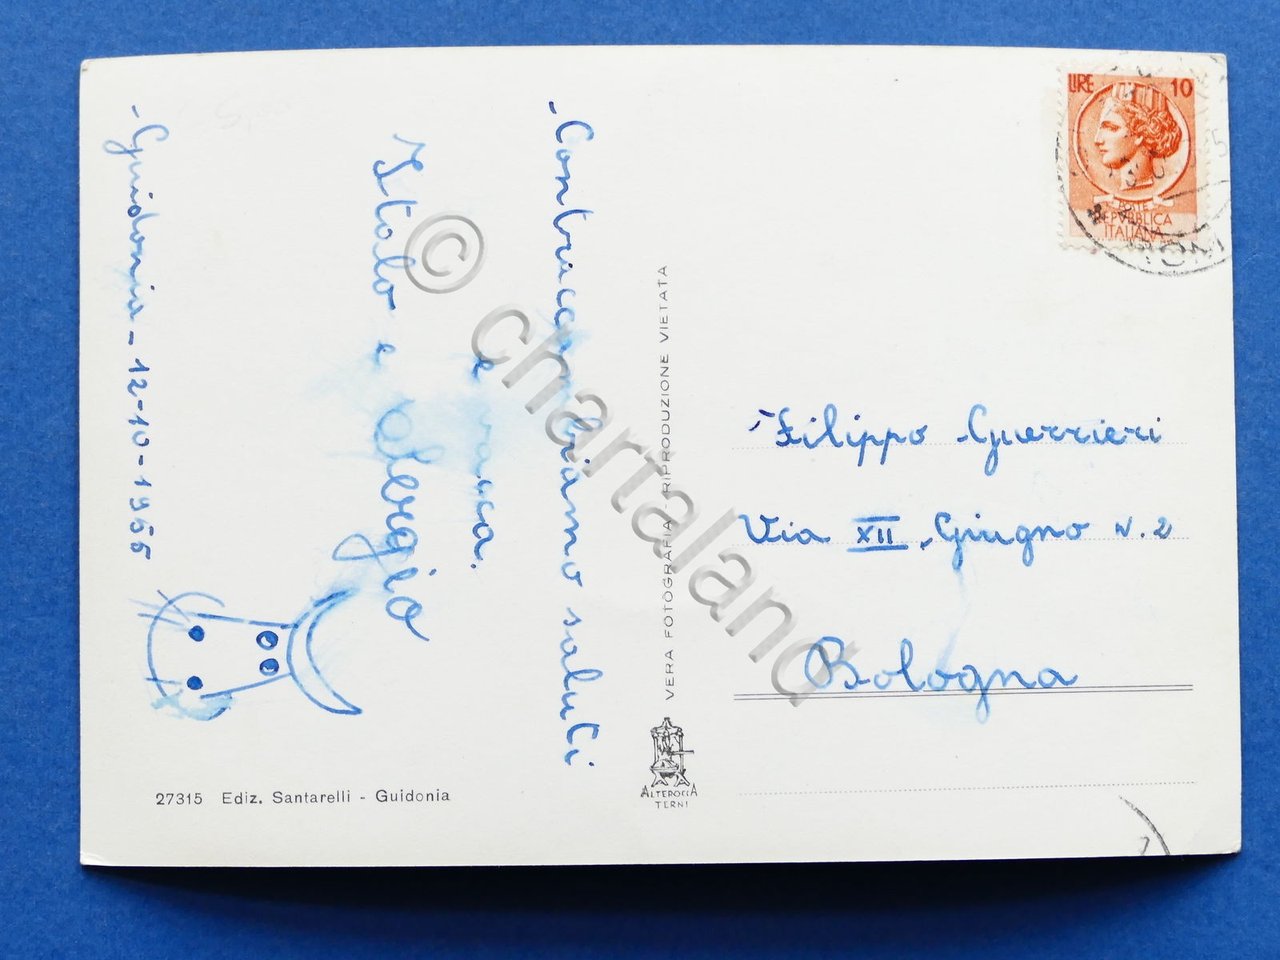 - Contraccambiamo saluti
e vacca.
Italo e Sergio
- Guidonia - 12-10-1955
27315 Ediz. Santarelli - Guidonia
VERA FOTOGRAFIA - RIPRODUZIONE VIETATA
ALTEROCCA
TERNI
LIRE 10
POSTE
REPVBBLICA
ITALIANA
Filippo Guerrieri
Via XII Giugno N. 2
Bologna
© chartaland